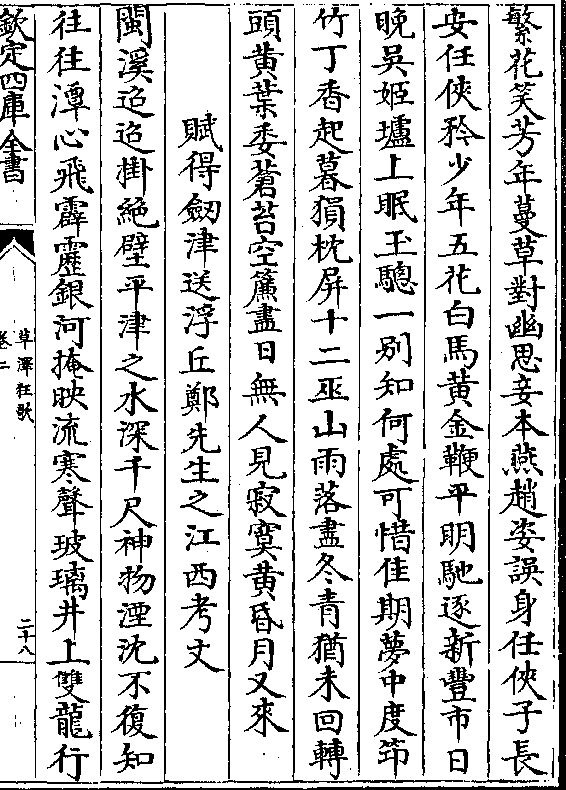 繁花笑芳年蔓草對幽思妾本燕趙姿誤身任俠子長
安任俠矜少年五花白馬黄金鞭平明馳逐新豐市日
晩吳姬壚上眠玉驄一别知何處可惜佳期夢中度笻
竹丁香起暮猿枕屏十二巫山雨落盡冬青猶未回轉
頭黄葉委蒼苔空簾盡日無人見寂寞黄昏月又來
賦得劒津送浮丘鄭先生之江西考丈
閩溪迢迢掛絶壁平津之水深千尺神物湮沈不復知
往往潭心飛霹靂銀河掩映流寒聲玻璃井上雙龍行
欽定四庫全書
草澤狂歌
卷二
二十八